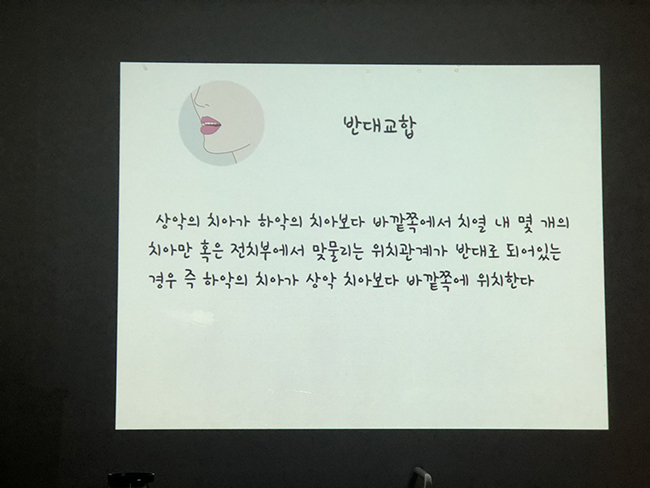 반대교합
상악의 치아가 하악의 치아보다 바깥쪽에서 치열 내 몇 개의
치아만 혹은 전치부에서 맞물리는 위치관계가 반대로 되어있는
경우 즉 하악의 치아가 상악 치아보다 바깥쪽에 위치한다